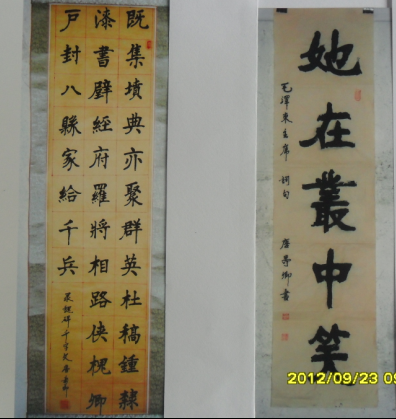 既集墳典亦聚群英杜稿鍾隸
漆書壁經府羅將相路俠槐卿
戶封八縣家給千兵
魏碑千字文
她在叢中笑
毛澤東主席 詞句
卿書
2012/09/23